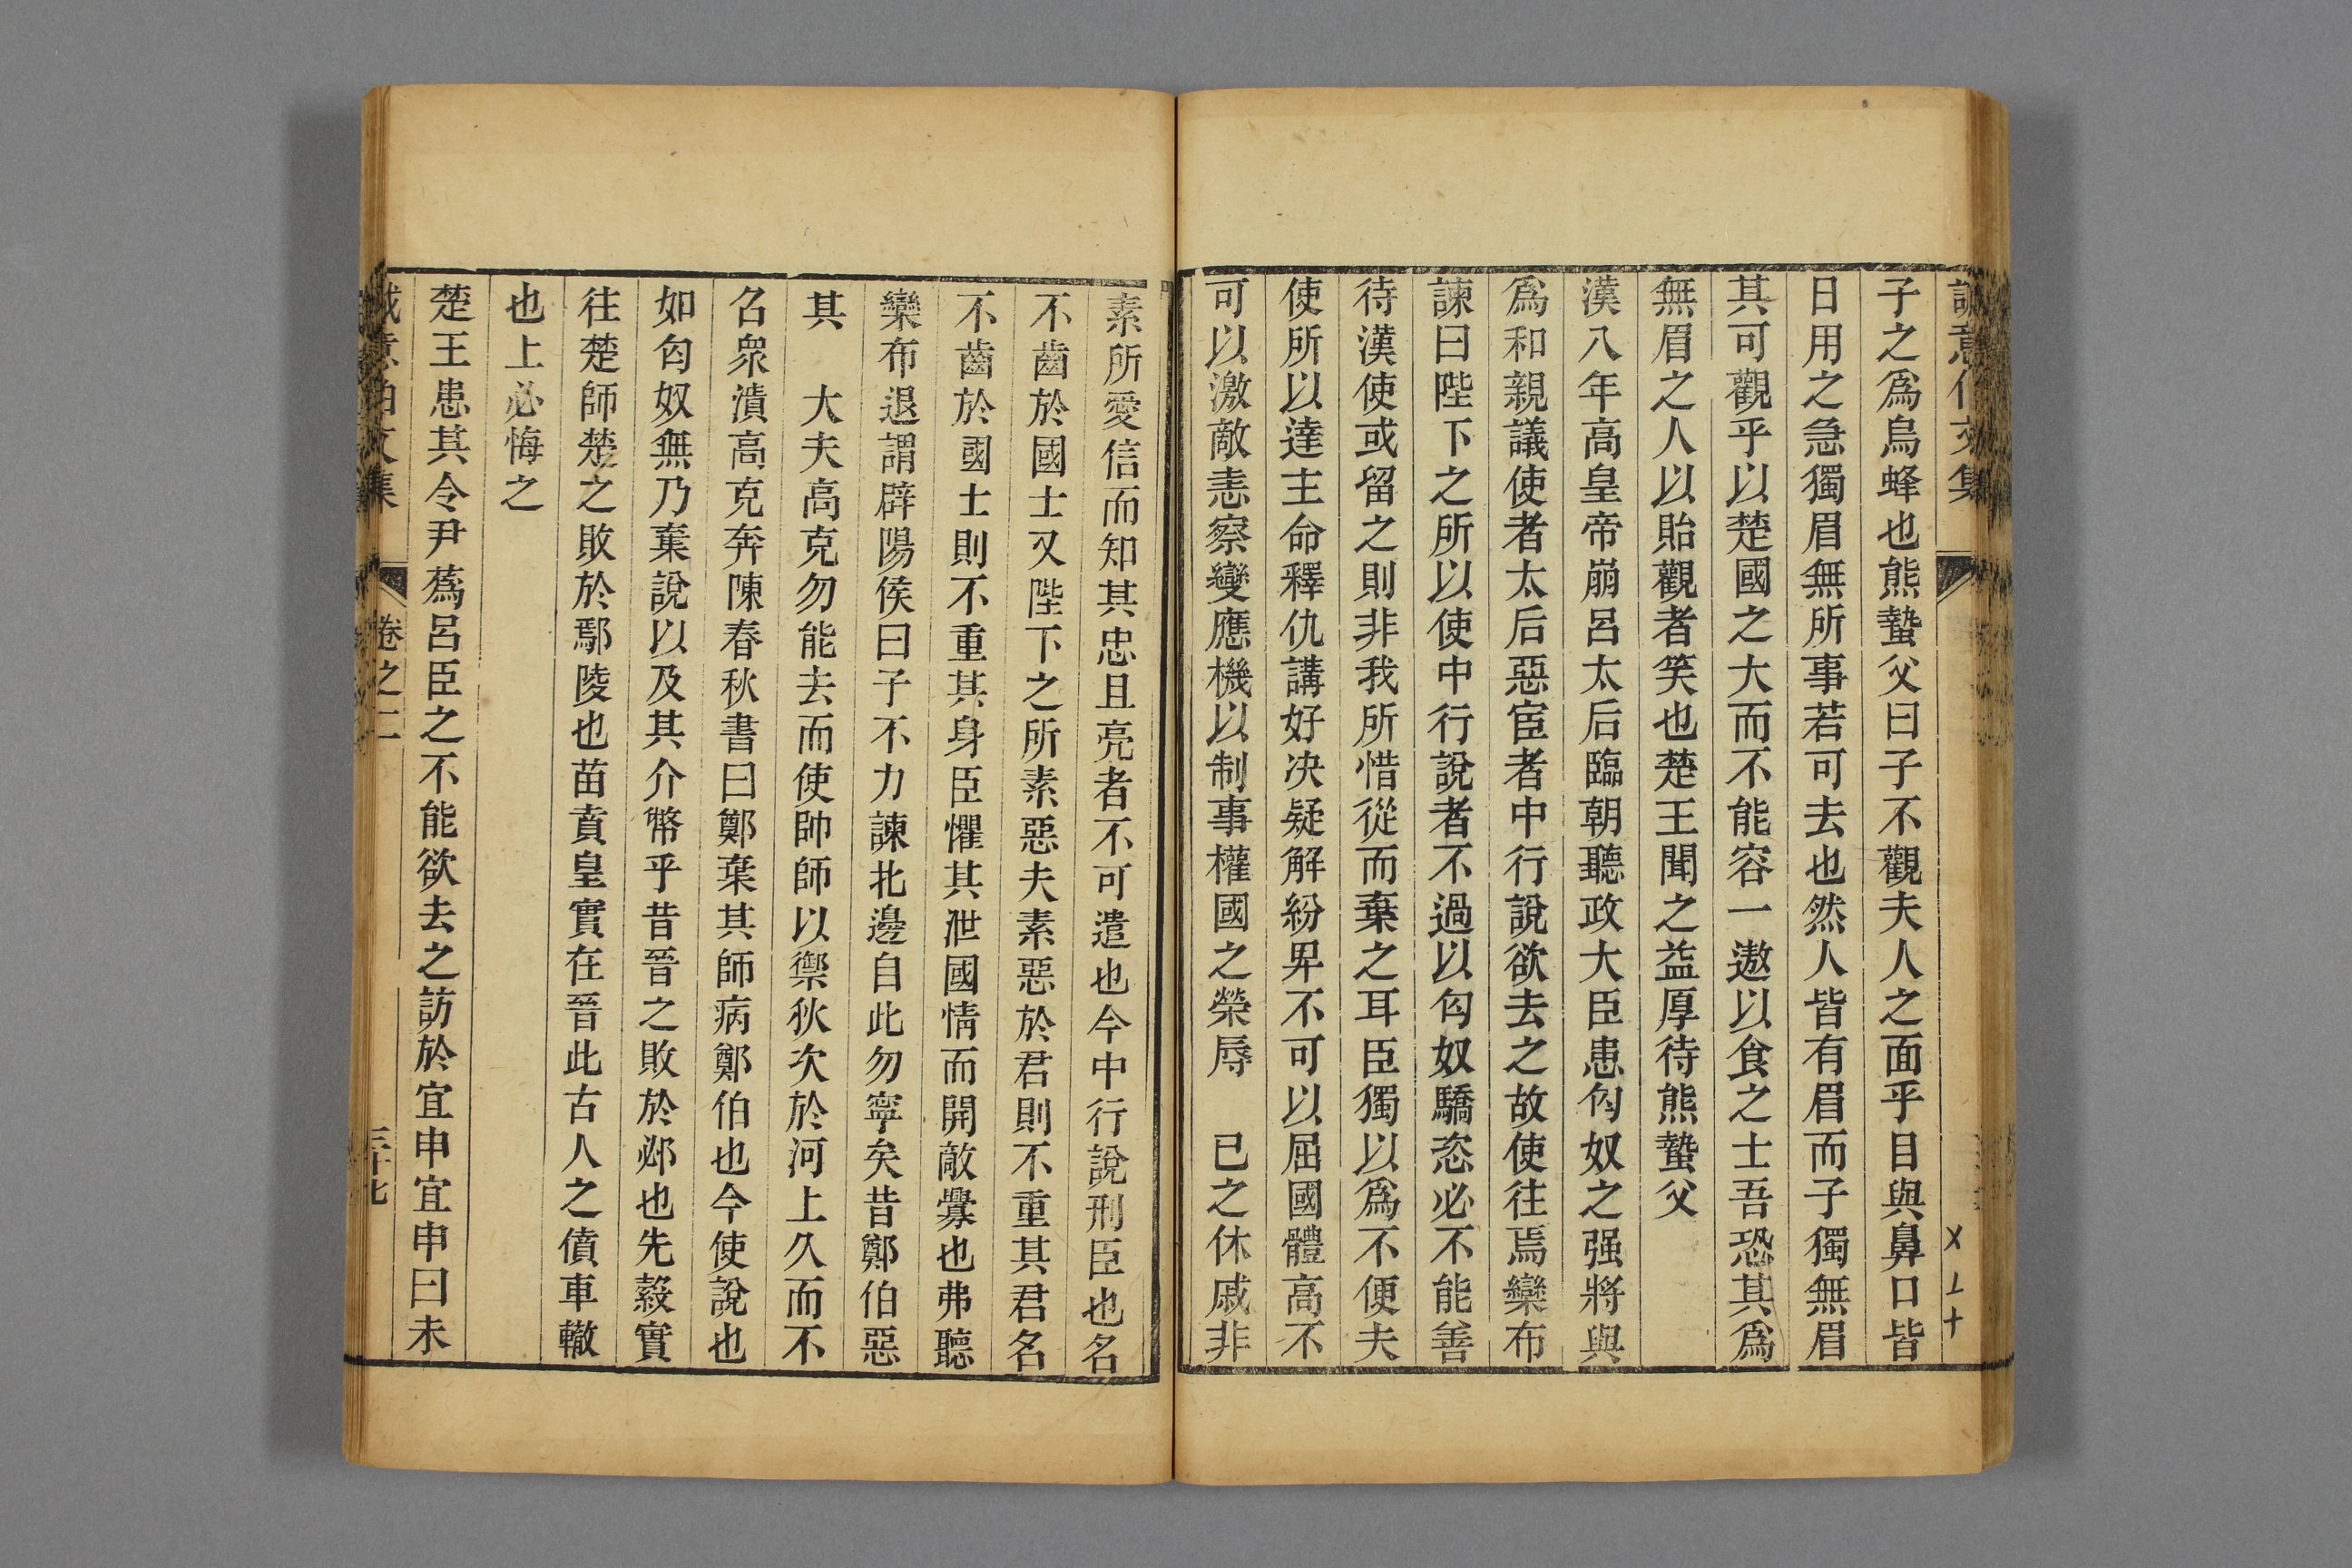 誠意伯文集
子之爲烏蜂也熊蟄父曰子不觀夫人之面乎目與鼻口皆
日用之急獨眉無所事若可去也然人皆有眉而子獨無眉
其可觀乎以楚國之大而不能容一遨以食之士吾恐其爲
無眉之人以貽觀者笑也楚王聞之益厚待熊蟄父
漢八年高皇帝崩呂太后臨朝聽政大臣患匈奴之强將與
爲和親議使者太后惡宦者中行說欲去之故使往焉欒布
諫曰陛下之所以使中行說者不過以匈奴驕恣必不能善
待漢使或留之則非我所惜從而棄之耳臣獨以爲不便夫
使所以達主命釋仇講好决疑解紛卑不可以屈國體高不
可以激敵恚察變應機以制事權國之榮辱　已之休戚非
素所愛信而知其忠且亮者不可遣也今中行說刑臣也名
不齒於國士又陛下之所素惡夫素惡於君則不重其君名
不齒於國士則不重其身臣懼其泄國情而開敵釁也弗聽
欒布退謂辟陽侯曰子不力諫北邊自此勿寧矣昔鄭伯惡
其　大夫高克勿能去而使帥師以禦狄次於河上久而不
召衆潰高克奔陳春秋書曰鄭棄其師病鄭伯也今使說也
如匈奴無乃棄說以及其介幣乎昔晉之敗於邲也先縠實
往楚師楚之敗於鄢陵也苗賁皇實在晉此古人之僨車轍
也上必悔之
楚王患其令尹蔿呂臣之不能欲去之訪於宜申宜申曰未
誠意伯文集　卷之二　三十七